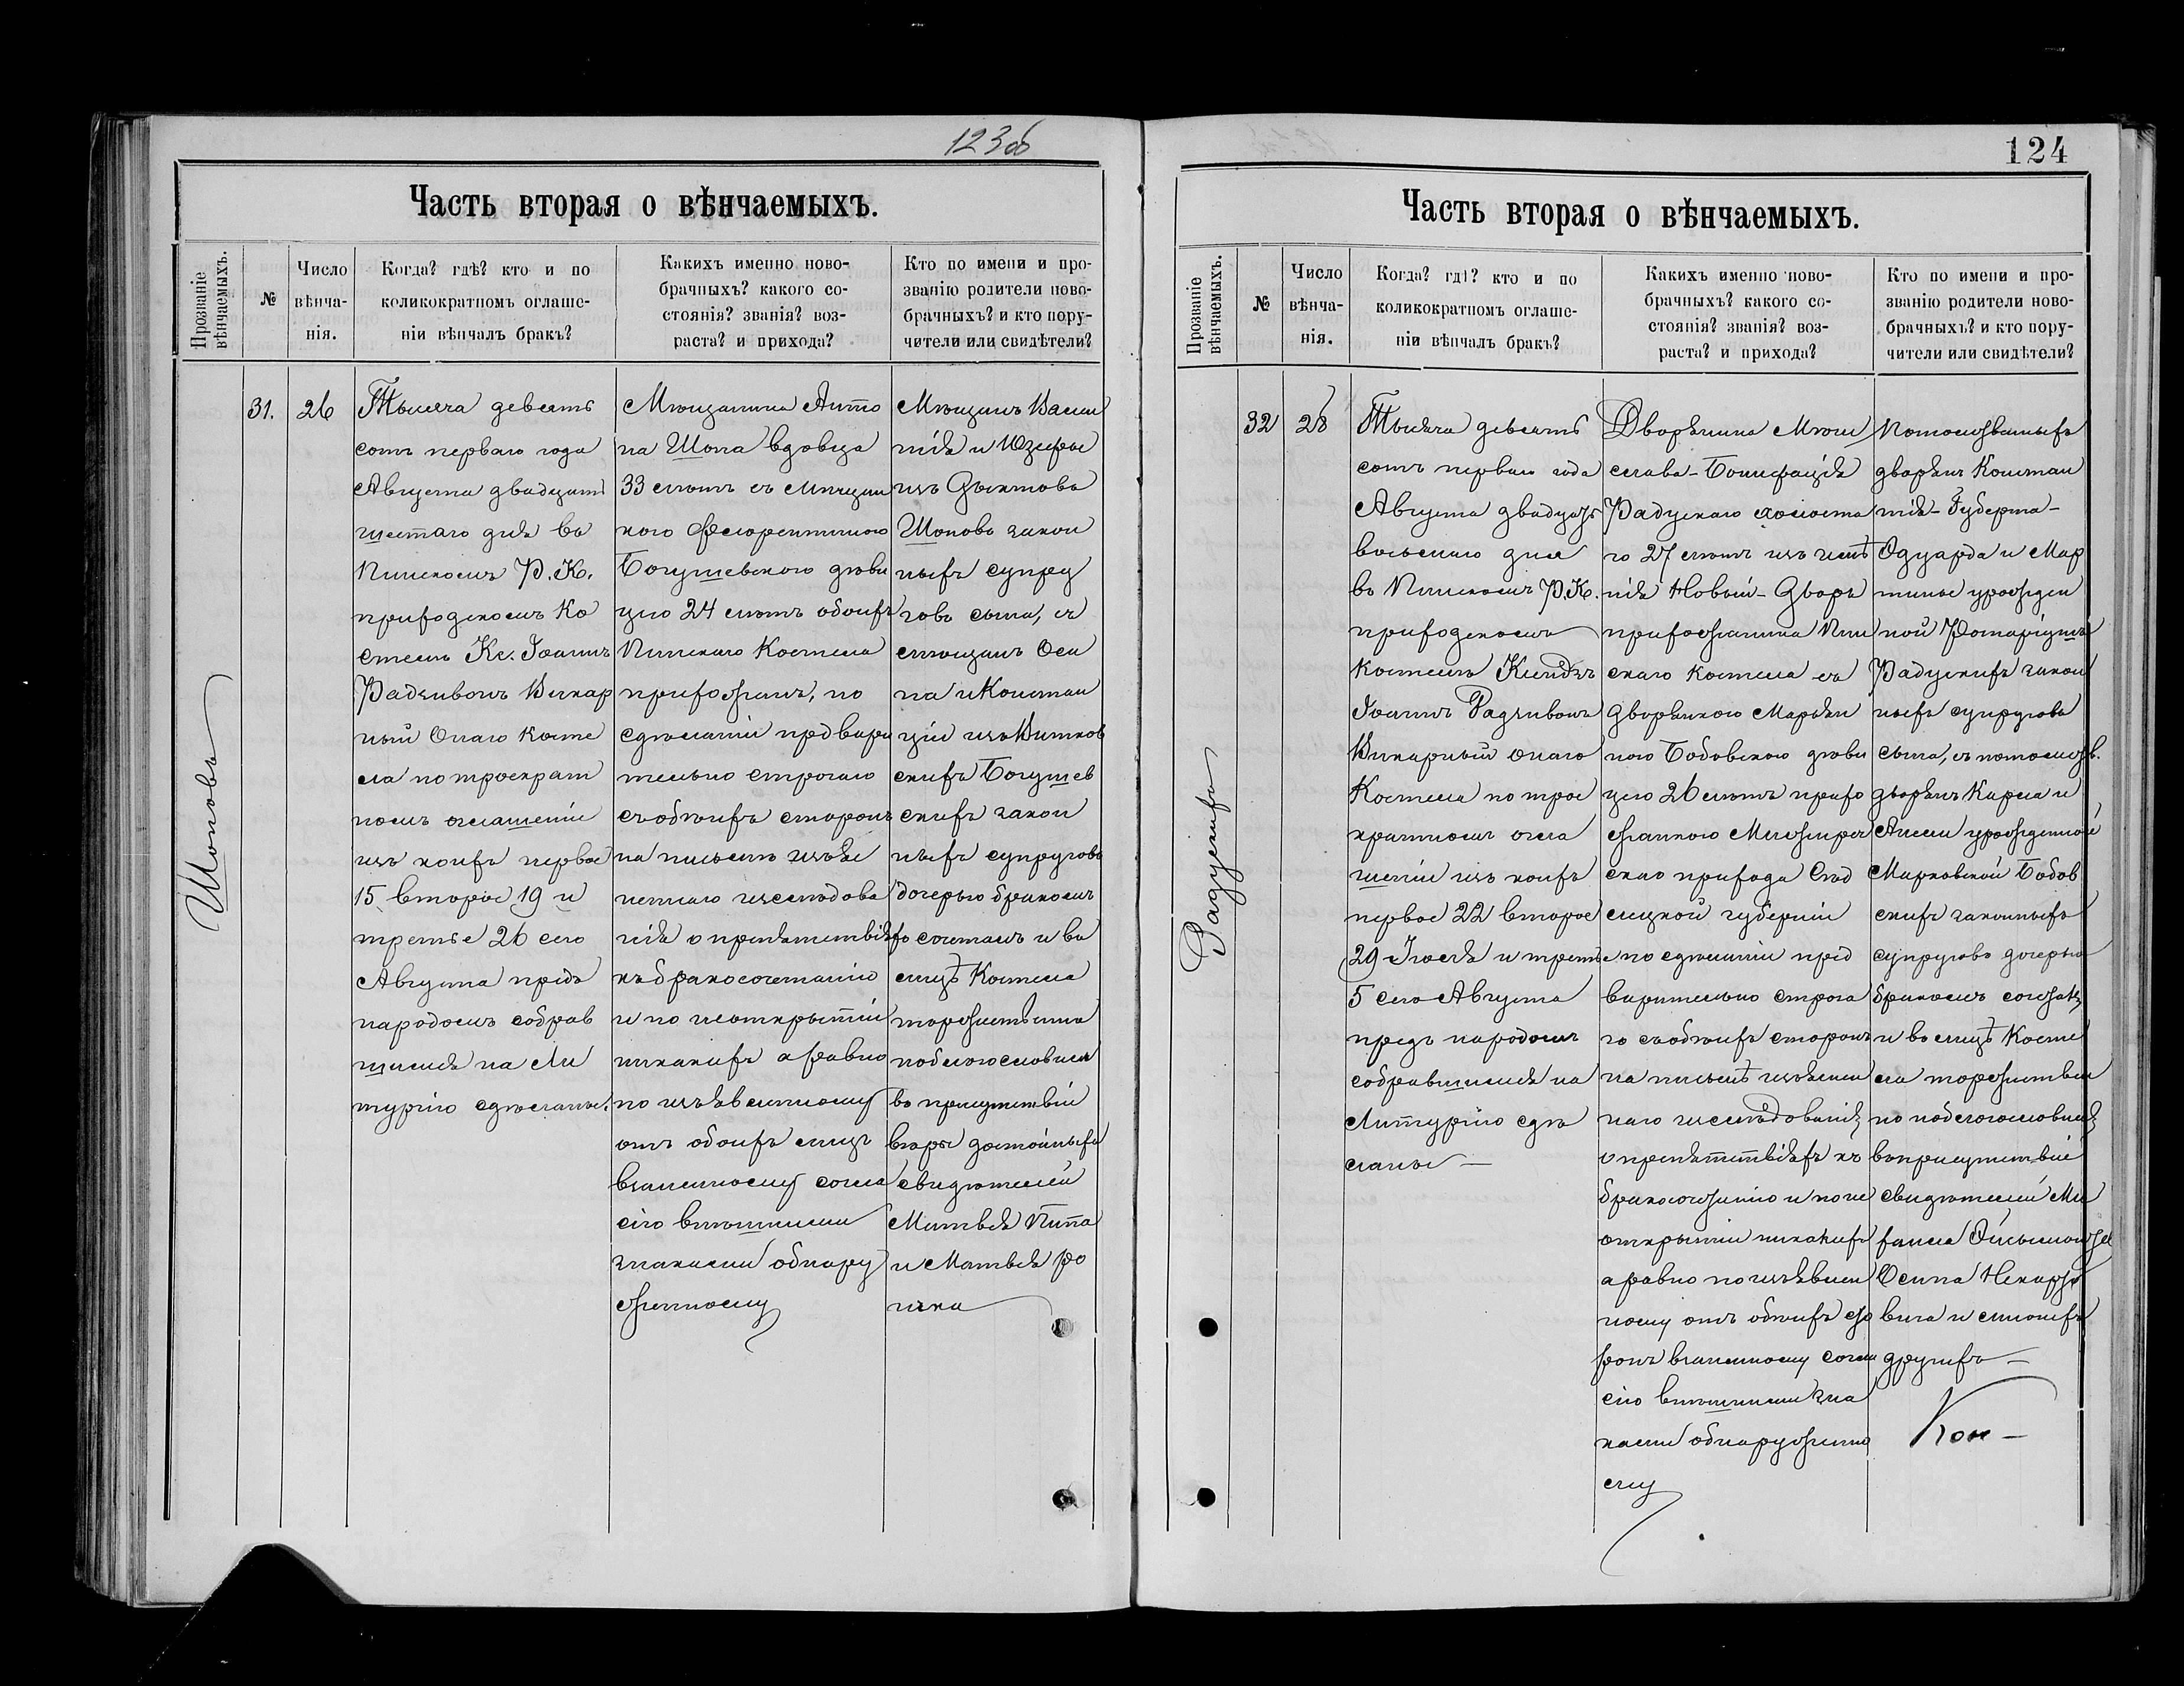 123об
Часть вторая о вѣнчаемыхъ.
Прозваніе вѣнчаемыхъ.
№
Число вѣнча-
нія.
Когда? гдѣ? кто и по
коликократномъ оглаше-
ніи вѣнчалъ бракъ?
Какихъ именно ново-
брачныхъ? какого со-
стоянія? званія? воз-
раста? и прихода?
Кто по имени и про-
званію родители ново-
брачныхъ? и кто пору-
чители или свидѣтели?
Шоповъ
31.
26
Тысяча девять
сотъ перваго года
Августа двадцать
шестаго дня въ
Пинскомъ Р. К.
приходскомъ Ко
стелѣ Кс. Іоаннъ
Радзивонъ Викар
ный Онаго Косте
ла по троекрат
номъ оглашеніи
изъ коихъ первое
15 второе 19 и
третье 26 сего
Августа предъ
народомъ собрав
шимся на Ли
тургію сдѣланы.
Мѣщанина Анто
на Шопа вдовца
33 лѣтъ съ мѣщан
кою Флорентиною
Богушевскою дѣви
цею 24 лѣтъ обоихъ
Пинскаго Костела
прихожанъ, по
сдѣланіи предвари
тельно строгаго
съ обѣихъ сторонъ
на письмѣ изъяс
неннаго изслѣдова
нія о препятствіяхъ
къ бракосочетанію
и по неоткрытіи
никакихъ а равно
по изъявленному
отъ обоихъ лицъ
взаимному согла
сію внѣшними
знаками обнару
женному
Мѣщанъ Васи
лія и Юзефы
изъ Дыктовъ
Шоповъ закон
ныхъ супру
говъ сына, съ
мѣщанъ Оси
па и Констан
ціи изъ Витков
скихъ Богушев
скихъ закон
ныхъ супруговъ
дочерью бракомъ
сочеталъ и въ
лицѣ Костела
торжественно
поблагословилъ
въ присутствіи
вѣры достойныхъ
свидѣтелей
Матвѣя Пипа
и Матвѣя Ро
чка
124
Часть вторая о вѣнчаемыхъ.
Прозваніе вѣнчаемыхъ.
№
Число вѣнча-
нія.
Когда? гдѣ? кто и по
коликократномъ оглаше-
ніи вѣнчалъ бракъ?
Какихъ именно ново-
брачныхъ? какого со-
стоянія? званія? воз-
раста? и прихода?
Кто по имени и про-
званію родители ново-
брачныхъ? и кто пору-
чители или свидѣтели?
Радускихъ
32
28
Тысяча девять
сотъ перваго года
Августа двадцать
восьмаго дня
въ Пинскомъ Р.К.
приходскомъ
Костелѣ Ксендзъ
Іоаннъ Радзивонъ
Викарный онаго
Костела по трое
кратномъ огла
шеніи изъ коихъ
первое 22 второе
29 Іюля и третье
5 сего Августа
предъ народомъ
собравшимся на
Литургію сдѣ
ланы —
Дворянина Мечи
слава-Бонифація
Радускаго холоста
го 27 лѣтъ изъ имѣ
нія Новый-Дворъ
прихожанина Пин
скаго костела съ
дворянкою Маріан
ною Бобовскою дѣви
цею 26 лѣтъ прихо
жанкою
скаго прихода Сѣд
лецкой губерніи
по сдѣланіи пред
варительно строга
го съ обѣихъ сторонъ
на письмѣ изъяснен
наго изслѣдованія
о препятствіяхъ къ
бракосочетанію и по не
открытіи никакихъ
а равно по изъявлен
ному отъ обѣихъ сто
ронъ взаимному согла
сію внѣшними зна
ками обнаруженно
му
Потомственныхъ
дворянъ Констан
тія-Губерта-
Эдуарда и Мар
тины урожден
ной
Радускихъ закон
ныхъ супруговъ
сына, съ потомств.
дворянъ Карла и
Анели урожденной
Марковской Бобов
скихъ законныхъ
супруговъ дочерью
бракомъ сочеталъ
и въ лицѣ Косте
ла торжествен
но поблагословилъ
въ присутствіи
свидѣтелей Ми
хаила
Осипа
вича и многихъ
другихъ —